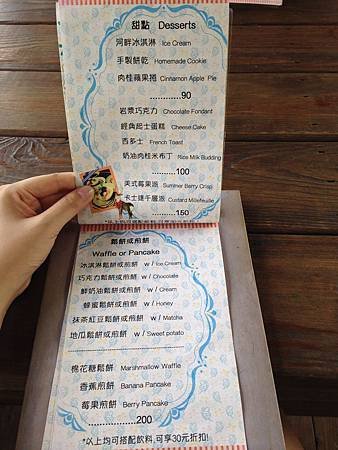 甜點 Desserts
河畔冰淇淋 Ice Cream
手製餅乾 Homemade Cookie
肉桂蘋果捲 Cinnamon Apple Pie
............90
岩漿巧克力 Chocolate Fondant
經典起士蛋糕 Cheese Cake
西多士 French Toast
奶油肉桂米布丁 Rice Milk Budding
............100
美式莓果派 Summer Berry Crisp
卡士達千層派 Custard Millefeuille
............150
*以上均可搭配飲料,可享30元
鬆餅或煎餅
Waffle or Pancake
冰淇淋鬆餅或煎餅 w / Ice Cream
巧克力鬆餅或煎餅 w / Chocolate
鮮奶油鬆餅或煎餅 w / Cream
蜂蜜鬆餅或煎餅 w / Honey
抹茶紅豆鬆餅或煎餅 w / Matcha
地瓜鬆餅或煎餅 w / Sweet potato
棉花糖鬆餅 Marshmallow Waffle
香蕉煎餅 Banana Pancake
莓果煎餅 Berry Pancake
............200
*以上均可搭配飲料,可享30元折扣!